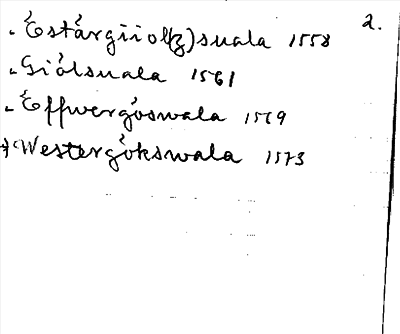 2.
Éstárgiiol(z)suala 1558
Giólsuala 1561
Éffwergóswala 1569
Westergókswala 1573